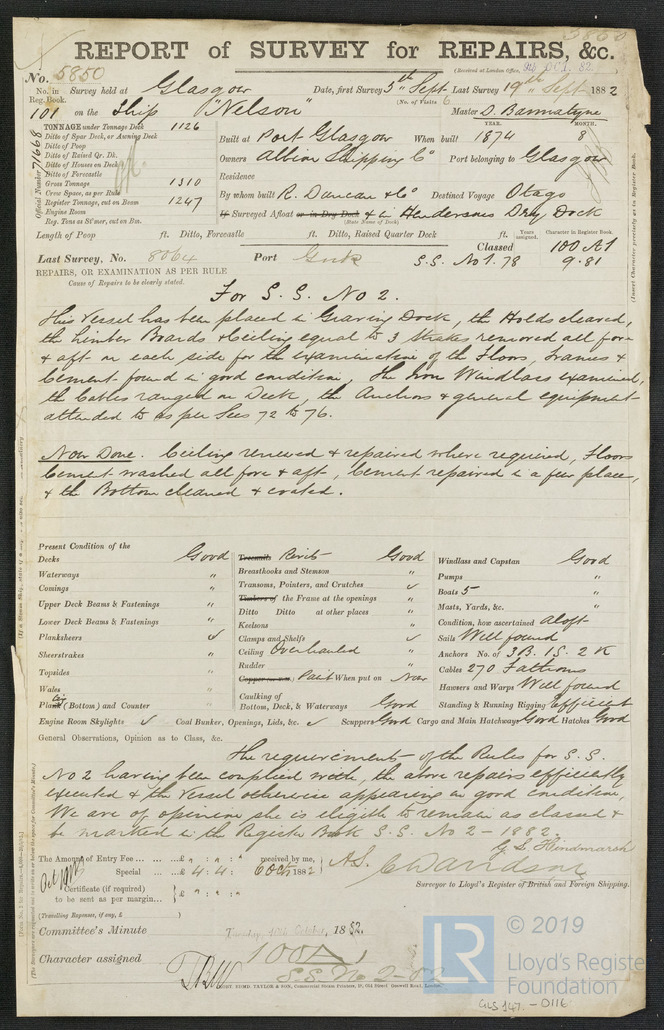 REPORT of SURVEY for REPAIRS, &c.
No. 5850
(Received at London Office,
No. in Reg. Book. Survey held at Glasgow Date, first Survey 5th Sept Last Survey 19th Sept 1882
(No. of Visits 6
101 on the Ship "Nelson" Master D. Bannatyne
TONNAGE under Tonnage Deck 1126
Ditto of Spar Deck, or Awning Deck
Ditto of Poop
Ditto of Raised Qr. Dk.
Ditto of Houses on Deck
Ditto of Forecastle
Gross Tonnage 1310
Crew Space, as per Rule
Register Tonnage, cut on Beam 1247
Engine Room
Reg. Tons as St'mer, cut on Bm.
Official Number 71668
YEAR. MONTH.
Built at Port Glasgow When built 1874 8
Owners Albion Shipping Co Port belonging to Glasgow
Residence
By whom built R. Duncan & Co Destined Voyage Otago
If Surveyed Afloat or in Dry Dock & in Hendersons Dry Dock
(State Name of Dock)
Length of Poop ft. Ditto, Forecastle ft. Ditto, Raised Quarter Deck ft.
Years assigned. Character in Register Book.
Classed 100 A1
Last Survey, No. 8064 Port Gork S.S. No 1. 78 9.81
(Insert Character precisely as in Register Book.
REPAIRS, OR EXAMINATION AS PER RULE
Cause of Repairs to be clearly stated.
For S.S. No 2.
This Vessel has been placed in Graving Dock, the Holds cleared,
the Limber Boards & Ceiling equal to 3 Strakes removed all fore
& aft on each side for the examination of the Floors, Frames &
Cement found in good condition, The Iron Windlass examined,
the Cables ranged on Deck, the Anchors & general equipment
attended to as per Secs 72 to 76.
Now Done. Ceiling renewed & repaired where required, Floors
Cement washed all fore & aft, Cement repaired in a few places,
& the Bottom cleaned & coated.
Present Condition of the
Decks Good
Waterways "
Comings "
Upper Deck Beams & Fastenings "
Lower Deck Beams & Fastenings "
Planksheers ✓
Sheerstrakes "
Topsides "
Wales "
Plank (Bottom) and Counter "
Treenails Rivets Good
Breasthooks and Stemson "
Transoms, Pointers, and Crutches ✓
Timbers of the Frame at the openings "
Ditto Ditto at other places "
Keelsons "
Clamps and Shelfs ✓
Ceiling Overhauled "
Rudder "
Copper Paint When put on Now
Caulking of
Bottom, Deck, & Waterways Good
Windlass and Capstan Good
Pumps "
Boats 5 "
Masts, Yards, &c. "
Condition, how ascertained aloft
Sails Well found
Anchors No. of 3 B. 1 S. 2 K
Cables 270 Fathoms
Hawsers and Warps Well found
Standing & Running Rigging efficient
Engine Room Skylights ✓ Coal Bunker, Openings, Lids, &c. ✓ Scuppers Good Cargo and Main Hatchways Good Hatches Good
General Observations, Opinion as to Class, &c.
The requirements of the Rules for S.S.
No 2 having been complied with, the above repairs efficiently
executed & the Vessel otherwise appearing in good condition,
We are of opinion she is eligible to remain as classed &
be marked in the Register Book S.S. No 2 - 1882.
G. S. Hindmarsh
The Amount of Entry Fee ... £ " : " : " received by me,
Special ... £ 4 : 4 : 6 Oct 1882
Certificate (if required) £ " : " : "
to be sent as per margin...
(Travelling Expenses, if any, £ )
C Davidson
Surveyor to Lloyd's Register of British and Foreign Shipping.
Committee's Minute Tuesday, 10th October, 1882.
Character assigned 100 A 1
S.S. No 2 - 82
© 2019
LR
Lloyd's Register
Foundation
GLS 147 - 0116